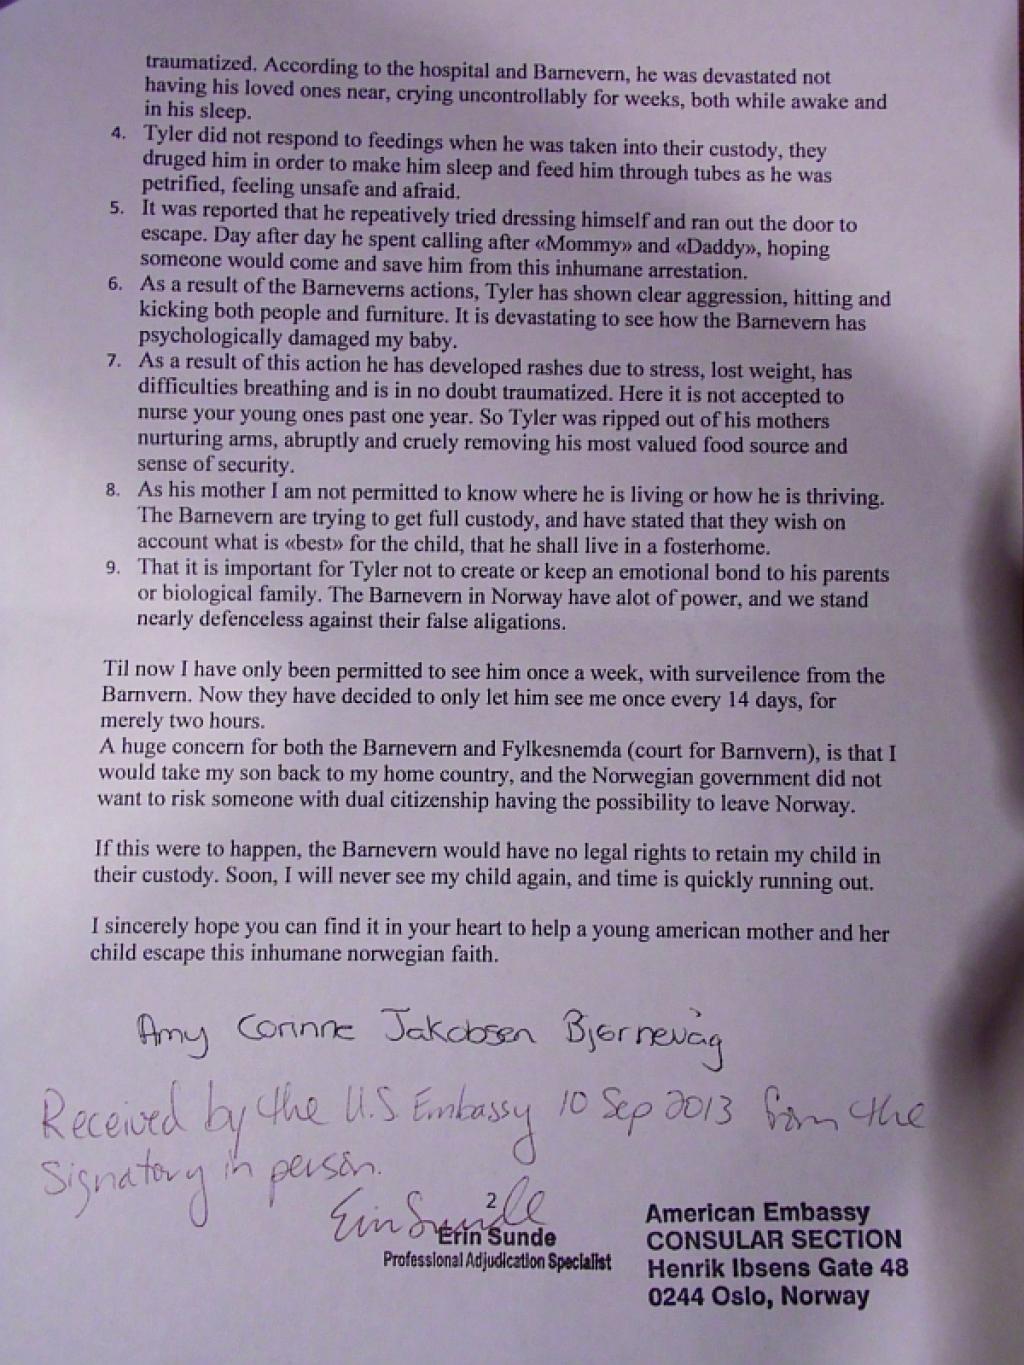 traumatized. According to the hospital and Barnevern, he was devastated not
having his loved ones near, crying uncontrollably for weeks, both while awake and
in his sleep.
4. Tyler did not respond to feedings when he was taken into their custody, they
druged him in order to make him sleep and feed him through tubes as he was
petrified, feeling unsafe and afraid.
5. It was reported that he repeatively tried dressing himself and ran out the door to
escape. Day after day he spent calling after «Mommy» and «Daddy», hoping
someone would come and save him from this inhumane arrestation.
6. As a result of the Barneverns actions, Tyler has shown clear aggression, hitting and
kicking both people and furniture. It is devastating to see how the Barnevern has
psychologically damaged my baby.
7. As a result of this action he has developed rashes due to stress, lost weight, has
difficulties breathing and is in no doubt traumatized. Here it is not accepted to
nurse your young ones past one year. So Tyler was ripped out of his mothers
nurturing arms, abruptly and cruely removing his most valued food source and
sense of security.
8. As his mother I am not permitted to know where he is living or how he is thriving.
The Barnevern are trying to get full custody, and have stated that they wish on
account what is «best» for the child, that he shall live in a fosterhome.
9. That it is important for Tyler not to create or keep an emotional bond to his parents
or biological family. The Barnevern in Norway have alot of power, and we stand
nearly defenceless against their false aligations.
Til now I have only been permitted to see him once a week, with surveilence from the
Barnvern. Now they have decided to only let him see me once every 14 days, for
merely two hours.
A huge concern for both the Barnevern and Fylkesnemda (court for Barnvern), is that I
would take my son back to my home country, and the Norwegian government did not
want to risk someone with dual citizenship having the possibility to leave Norway.
If this were to happen, the Barnevern would have no legal rights to retain my child in
their custody. Soon, I will never see my child again, and time is quickly running out.
I sincerely hope you can find it in your heart to help a young american mother and her
child escape this inhumane norwegian faith.
Amy Corinne Jakobsen Bjørnevåg
Received by the U.S. Embassy 10 Sep 2013 from the
Signatory in person.
2
Erin Sunde
Erin Sunde
Professional Adjudication Specialist
American Embassy
CONSULAR SECTION
Henrik Ibsens Gate 48
0244 Oslo, Norway